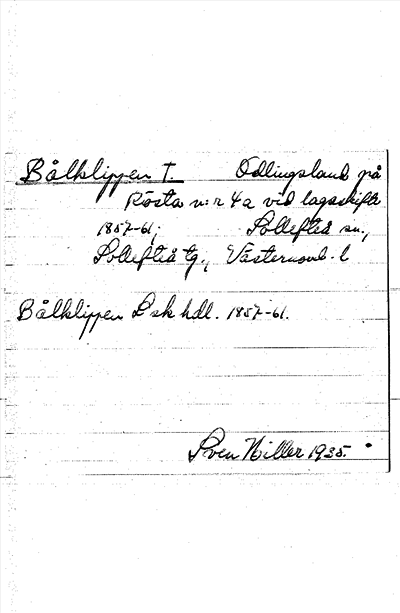 Bålklippen T. Odlingsland på
Rösta n:r 4a vid lagaskifte
1857-61; Sollefteå sn.,
Sollefteå tg., Västernorrl. l
Bålklippen Lsk hdl. 1857-61.
Sven Hiller 1935.